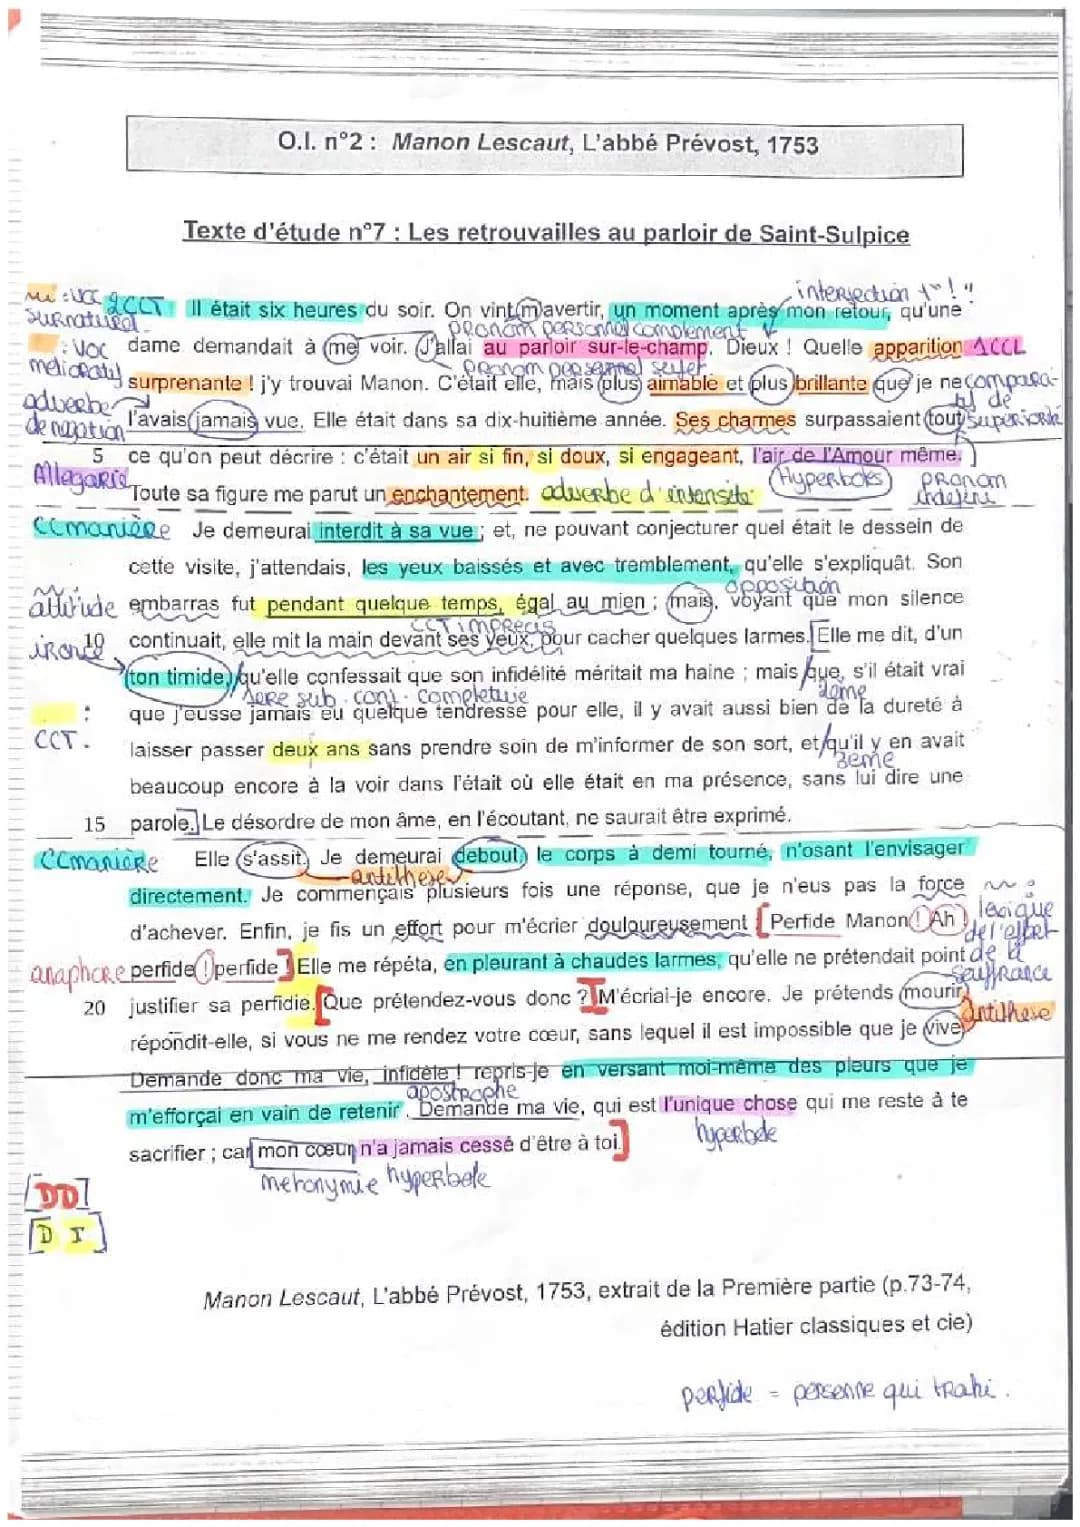 O.I. n°2 : Manon Lescaut, L'abbé Prévost, 1753
Texte d'étude n°7 : Les retrouvailles au parloir de Saint-Sulpice
interjection + "!"
: voc 2CCT Il était six heures du soir. On vint m'avertir, un moment après mon retour, qu'une
surnaturel
pronom personnel complément
: Voc dame demandait à me voir. J'allai au parloir sur-le-champ. Dieux ! Quelle apparition 1CCL
mélioratif
pronom personnel sujet
surprenante ! j'y trouvai Manon. C'était elle, mais plus aimable et plus brillante que je ne compara-
adverbe
tif de
de négation l'avais jamais vue. Elle était dans sa dix-huitième année. Ses charmes surpassaient tout supériorité
5 ce qu'on peut décrire : c'était un air si fin, si doux, si engageant, l'air de l'Amour même.
Allégorie Toute sa figure me parut un enchantement. adverbe d'intensité Hyperboles pronom
indéfini
CCmanière Je demeurai interdit à sa vue ; et, ne pouvant conjecturer quel était le dessein de
cette visite, j'attendais, les yeux baissés et avec tremblement, qu'elle s'expliquât. Son
opposition
attitude embarras fut pendant quelque temps, égal au mien ; mais, voyant que mon silence
CCT imprécis
10 continuait, elle mit la main devant ses yeux, pour cacher quelques larmes. Elle me dit, d'un
ironie
ton timide, qu'elle confessait que son infidélité méritait ma haine ; mais que, s'il était vrai
1ère sub. conj. complétive 2ème
: que j'eusse jamais eu quelque tendresse pour elle, il y avait aussi bien de la dureté à
CCT. laisser passer deux ans sans prendre soin de m'informer de son sort, et qu'il y en avait
3ème
beaucoup encore à la voir dans l'état où elle était en ma présence, sans lui dire une
15 parole. Le désordre de mon âme, en l'écoutant, ne saurait être exprimé.
CCmanière Elle s'assit. Je demeurai debout, le corps à demi tourné, n'osant l'envisager
antithèse
directement. Je commençais plusieurs fois une réponse, que je n'eus pas la force :
lexique
d'achever. Enfin, je fis un effort pour m'écrier douloureusement Perfide Manon ! Ah de l'effort
anaphore perfide ! perfide ! Elle me répéta, en pleurant à chaudes larmes, qu'elle ne prétendait point de la
souffrance
20 justifier sa perfidie. Que prétendez-vous donc ? M'écriai-je encore. Je prétends mourir,
antithèse
répondit-elle, si vous ne me rendez votre cœur, sans lequel il est impossible que je vive.
Demande donc ma vie, infidèle ! repris-je en versant moi-même des pleurs que je
apostrophe
m'efforçai en vain de retenir. Demande ma vie, qui est l'unique chose qui me reste à te
hyperbole
sacrifier ; car mon cœur n'a jamais cessé d'être à toi.
métonymie hyperbole
[DD]
[D I]
Manon Lescaut, L'abbé Prévost, 1753, extrait de la Première partie (p.73-74,
édition Hatier classiques et cie)
perfide = personne qui trahi.